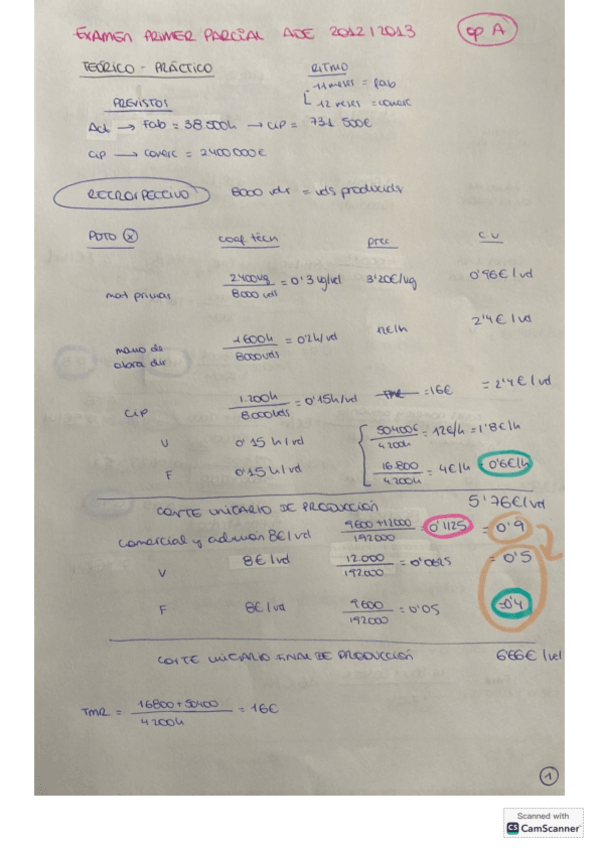 EXAMEN PRIMER PARCIAL ADE 2012/2013 op A
TEÓRICO - PRÁCTICO
RITMO
11 meses = fab
12 meses = comerc
PREVISTOS
Act → Fab = 38.500h → CIP = 731.500€
CIP → comerc = 2400.000€
RETROSPECTIVO 8000 uds = uds producidas
PDTO X coef. técn prec C.U
mat primas 2400ug / 8000 uds = 0'3 ug/ud 3'20€/ug 0'96€/ud
mano de obra dir 1600h / 8000uds = 0'2h/ud 12€/h 2'4€/ud
CIP 1.200h / 8000uds = 0'15h/ud = 16€ = 2'4€/ud
V 0'15 h/ud 50400€ / 4.200h = 12€/h = 1'8€/h
F 0'15h/ud 16.800 / 4.200h = 4€/h = 0'6€/h
COSTE UNITARIO DE PRODUCCIÓN 5'76€/ud
comercial y admón 8€/ud 9600+12000 / 192000 = 0'1125 = 0'9
V 8€/ud 12.000 / 192.000 = 0'0625 = 0'5
F 8€/ud 9600 / 192000 = 0'05 = 0'4
COSTE UNITARIO FINAL DE PRODUCCIÓN 6'66€/ud
TMR = 16800+50400 / 4200h = 16€
1
Scanned with
CS CamScanner